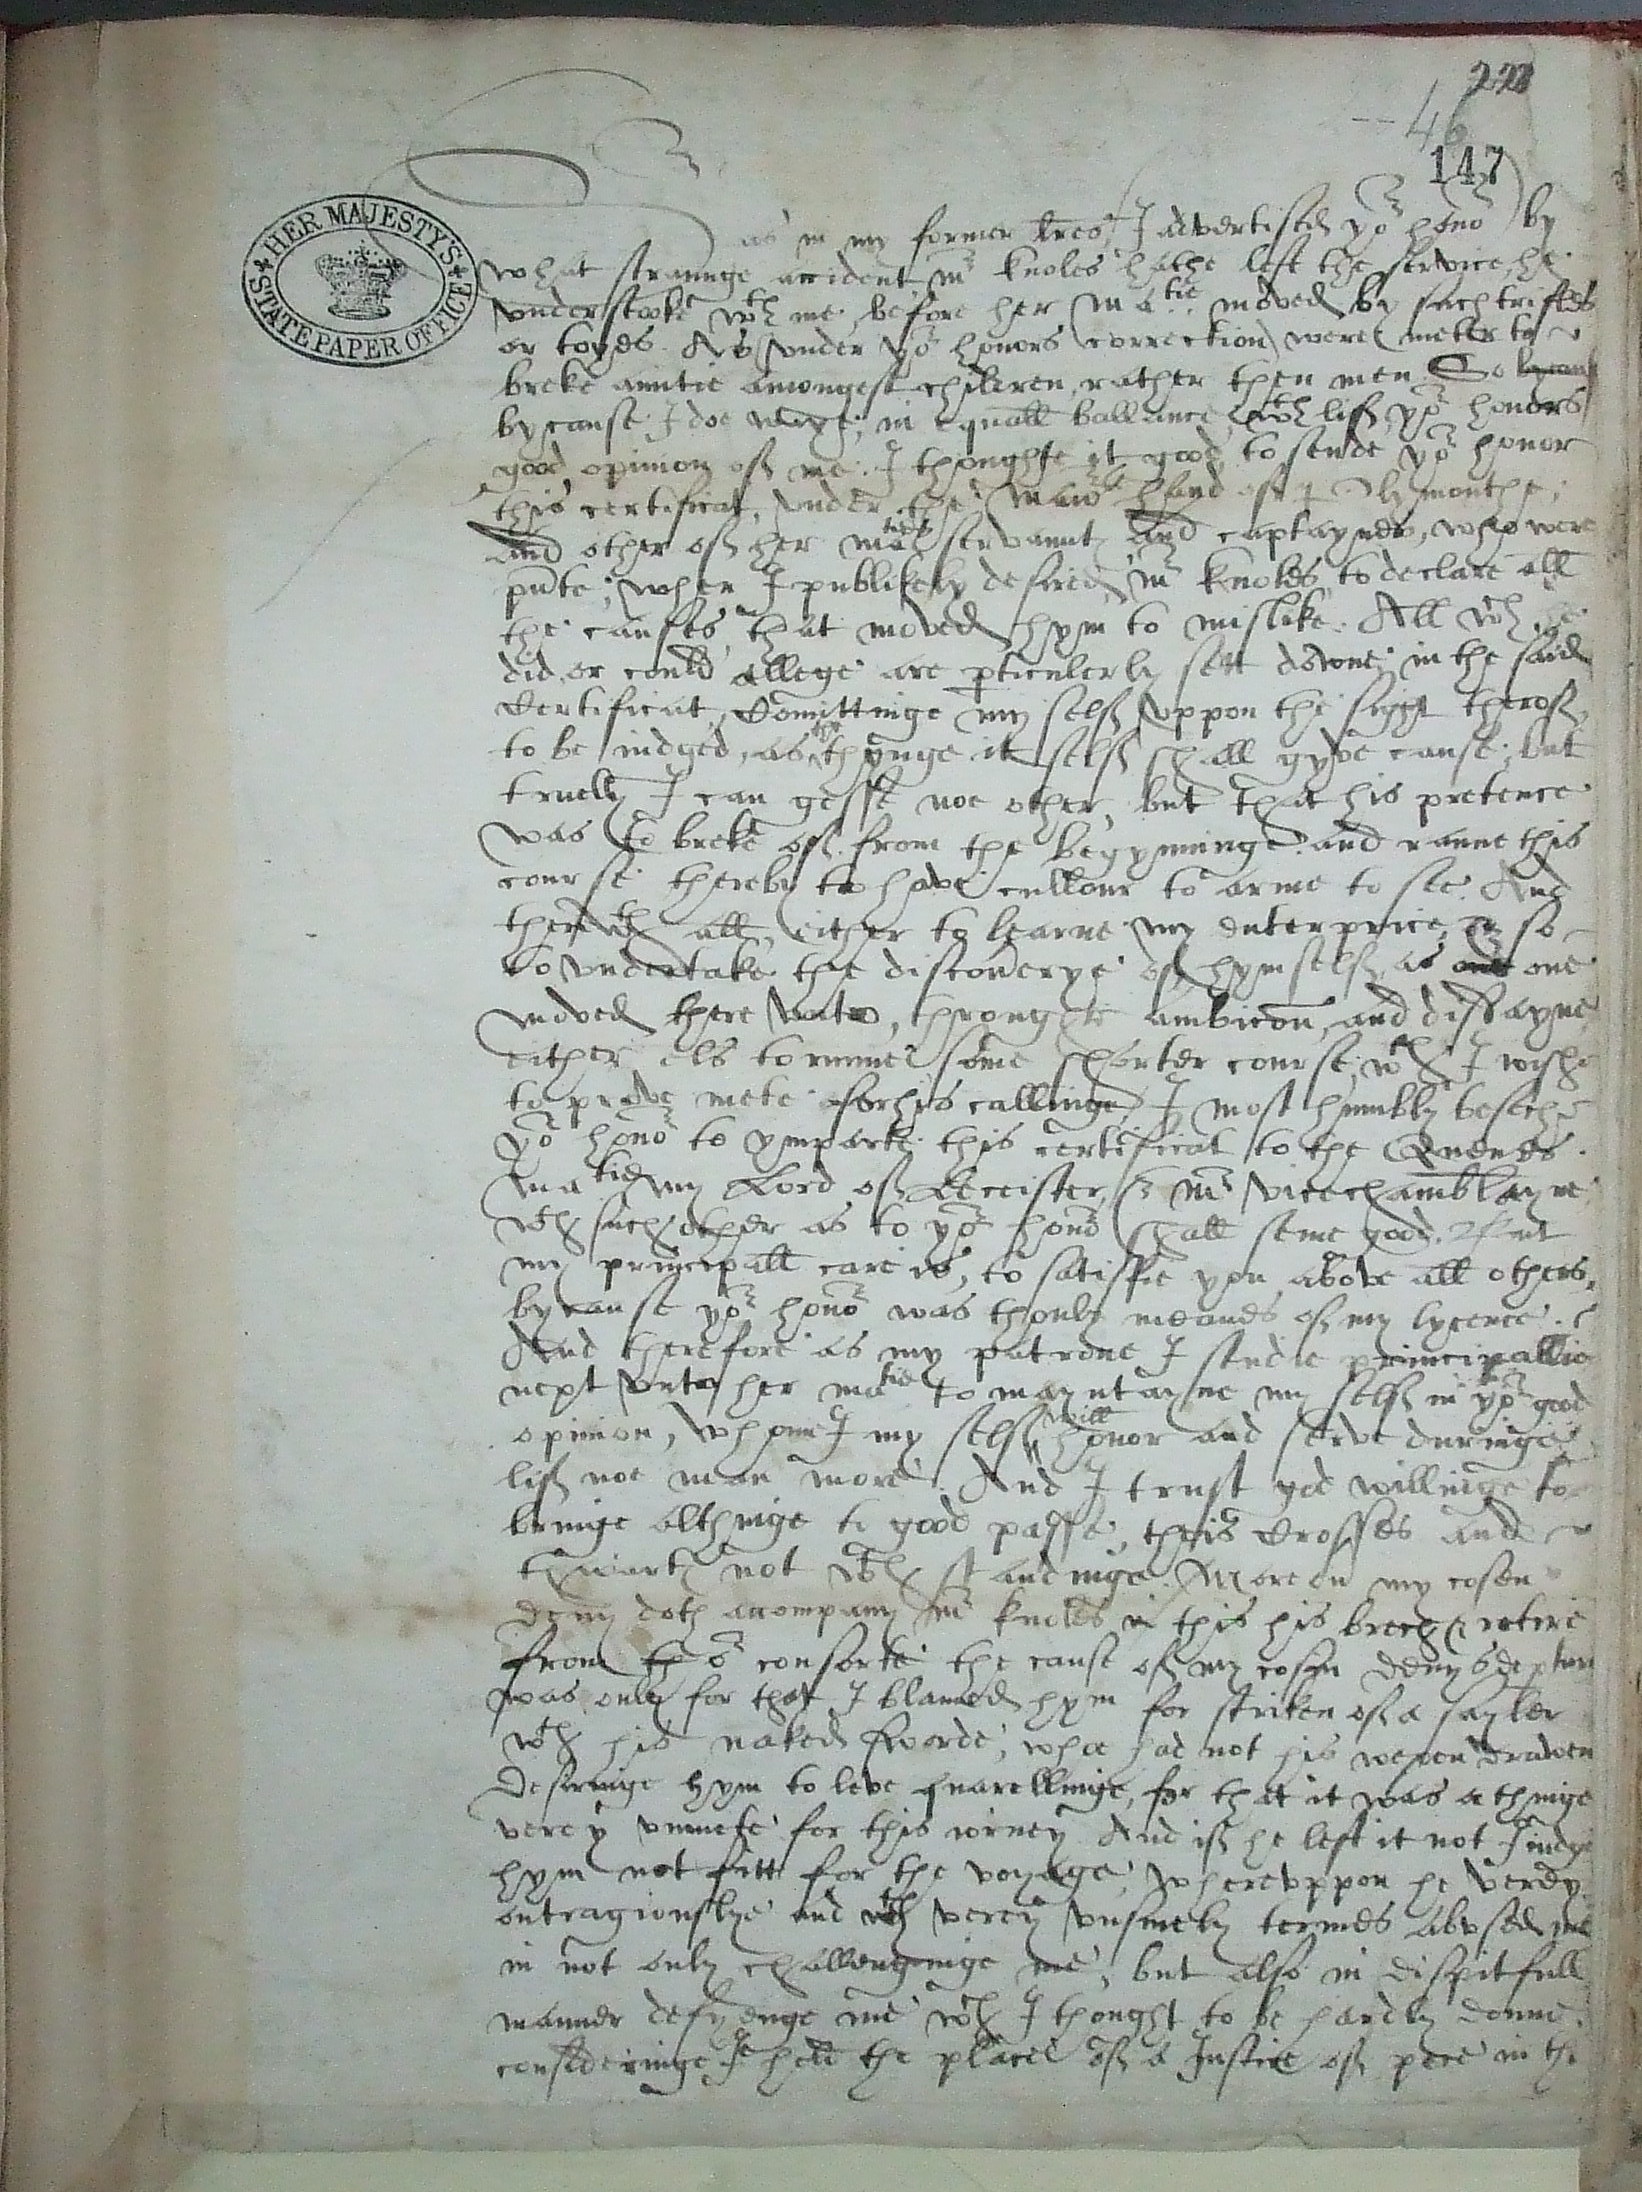 223
46
147
HER MAJESTY'S
STATE PAPER OFFICE
as in my former lres, I advertised yor honor by
what straunge accident mr knoles hathe left the service, he
understooke wth me, before her matie, moved by such trifles
or toyes. As (under yor honors correction) were meter to
breke amitie amongest children, rather then men. So
bycause I doe waye, in equall ballance, wth liff yor honors
good opinion off me. I thoughte it good to sende yor honor
this certificat, under the maiors hand off plymouthe,
and other off her maties servaunts and captaynes, who were
pnte, wher I publikely desired mr knoles to declare all
the causes that moved hym to mislike. All wch he
did, or could allege are pticulerly sett downe in the said
Certificat, Comittinge my selff uppon the sight theroff,
to be iudged, as the thynge it selff shall gyve cause, but
truely I can gesse noe other, but that his pretence
was to breke off from the begynninge, and ranne this
course therby to have cullour to arme to see. And
therwth all, either to learne my enterprice, & so
to undertake the discoverye off hymselff, as one
moved there unto, throughe ambicon, and disdayne
either els to runne some shorter course, wch I wishe
to prove mete for his callinge, I most humbly beseche
yor honor to ymparte this certificat to the Quenes
matie, my Lord off Leceister, & mr vicechamblayne
wth such other as to yor honor shall seme good. But
my principall care is, to satisfie you above all others,
bycause yor honor was thonly meanes off my lycence.
And therefore as my patrone I studie principallie
next unto her matie to mayntayne my selff in yor good
opinion, whome I my selff will honor and serve duringe
liff noe man more. And I trust god willinge to
bringe althinge to good passe, theis crosses and
thwarts not wth standinge. Moreover my cosen
Deny doth accompany mr knoles in this his breche & retire
from or consorte the cause off my cosen Denys depture
was only for that I blamed hym for striken off a sayler
wth his naked sworde, who had not his wepen drawen
Desiringe hym to leve quarellinge, for that it was a thinge
verey unmete for this iorney. And iff he left it not I iudge
hym not fitt for the voyage, whereuppon he verey
outragiouslye and wth verey unsmely termes abused me
in not only challenginge me, but also in dispitfull
manner defyenge me wch I thought to be hardly donne,
consideringe I held the place off a Justice off pece in the